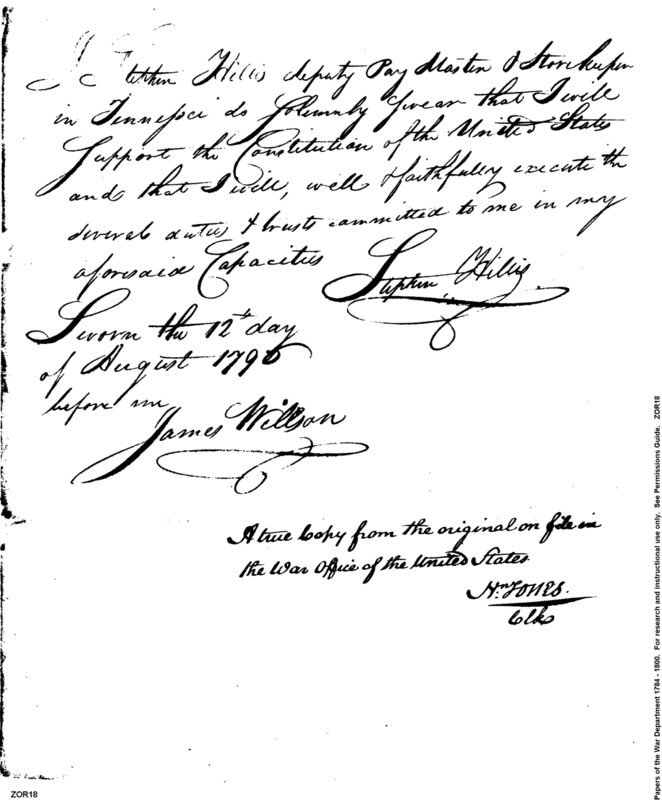 I Stephen Hillis deputy Pay Master & Storekeeper
in Tennessee do Solemnly Swear that I will
Support the Constitution of the United States
and that I will, well & faithfully execute the
several duties & trusts committed to me in my
aforesaid Capacities
Stephen Hillis
Sworn the 12th day
of August 1796
before me
James Willson
A true Copy from the original on file in
the War Office of the United States
Hn. JONES.
Clks
ZOR18
Papers of the War Department 1784 - 1800. For research and instructional use only. See Permissions Guide. ZOR18